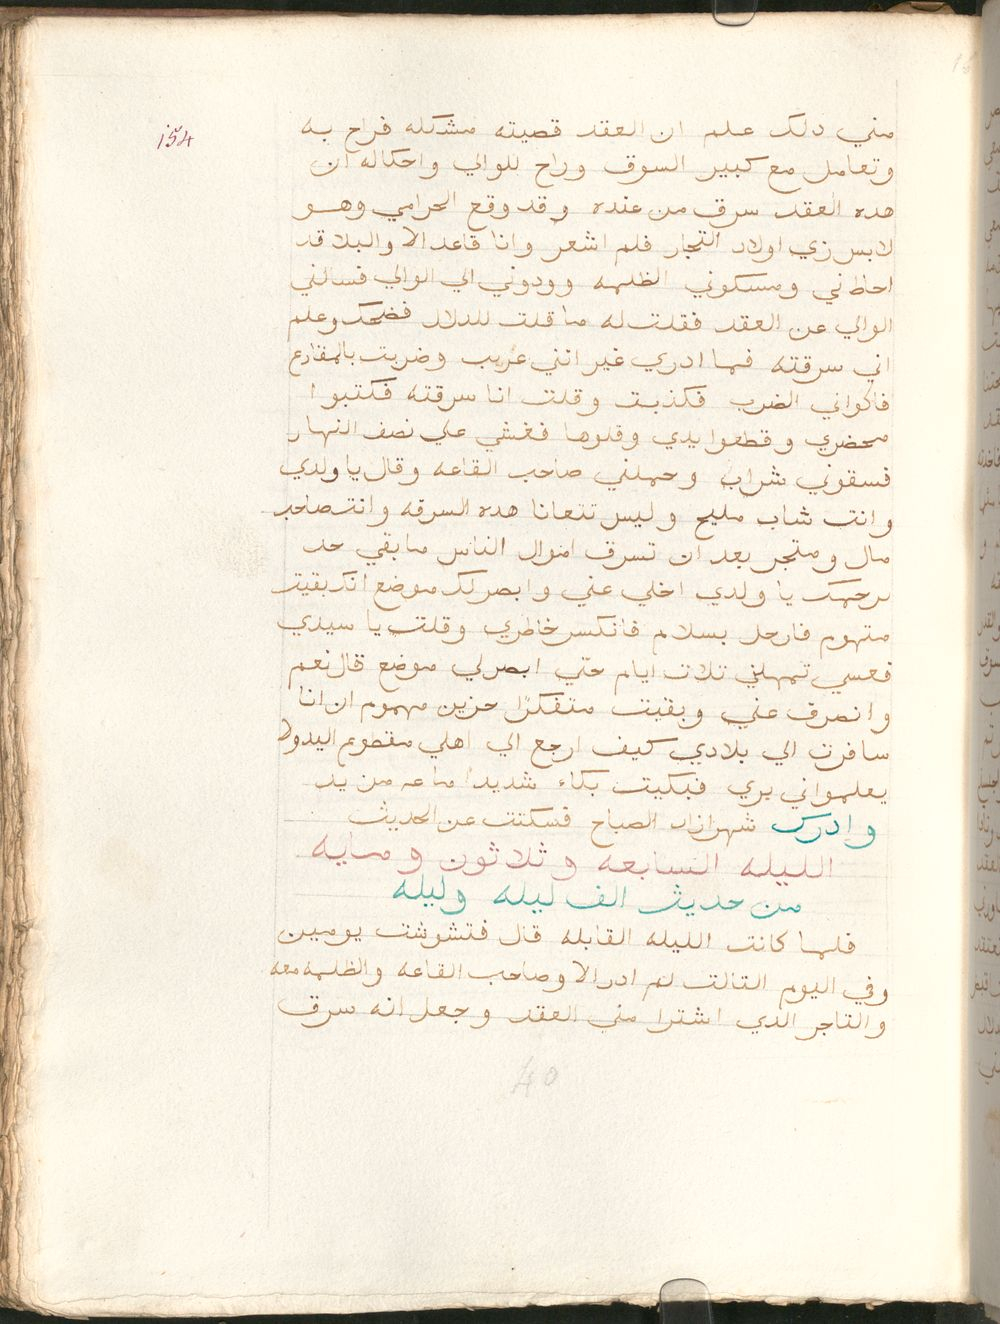 154
مني دلك علم ان العقد قصيته مشكله فراح به
وتعامل مع كبير السوق وراح للوالي واحكاله ان
هده العقد سرق من عنده وقد وقع الحرامي وهو
لابس زي اولاد التجار فلم اشعر وانا قاعد الا والبلا قد
احاط ني ومسكوني الظلمه وودوني الي الوالي فسالني
الوالي عن العقد فقلت له ما قلت للدلال فضحك وعلم
اني سرقته فما ادري غير انني عريب وضربت بالمقارع
فاكواني الضرب فكذبت وقلت انا سرقته فكتبوا
محضري وقطعوا يدي وقلوها فغشي علي نصف النهار
فسقوني شراب وحملني صاحب القاعه وقال يا ولدي
وانت شاب مليح وليس تتعانا هده السرقه وانت صاحب
مال ومتجر بعد ان تسرق اموال الناس ما بقي حد
يرحمك يا ولدي اخلي عني وابصر لك موضع انك بقيت
متهوم فارحل بسلام فانكسر خاطري وقلت يا سيدي
فعسي تمهلني تلات ايام حتي ابصر لي موضع قال نعم
وانصرف عني وبقيت متفكرا حزين مهموم ان انا
سافرت الي بلادي كيف ارجع الي اهلي مقصوم اليد ولا
يعلمواني بري فبكيت بكاء شديدا ما عه من يد
وادرك شهرازاد الصباح فسكتت عن الحديث
الليله السابعه وثلاثون ومايه
من حديث الف ليله وليله
فلما كانت الليله القابله قال فتشوشت يومين
وفي اليوم التالت لم ادر الا وصاحب القاعه والظلمه معه
والتاجر الدي اشترا مني العقد وجعل انه سرق
40